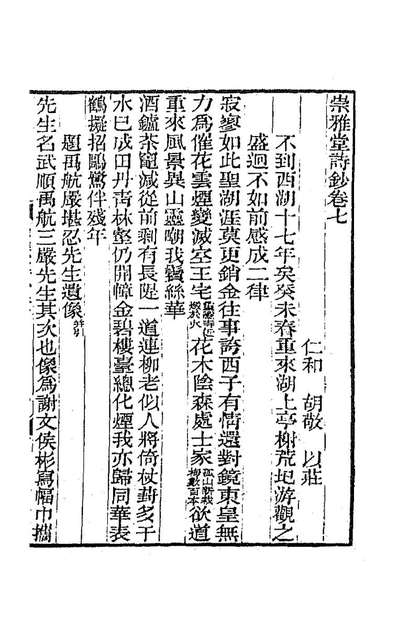 崇雅堂詩鈔卷七
仁和 胡敬 以莊
不到西湖十七年矣癸未春重來湖上亭榭荒圮游觀之
盛迥不如前感成二律
寂寥如此聖湖涯莫更銷金往事誇西子有情還對鏡東皇無
力爲催花雲煙變滅空王宅寺近燬於火花木陰森處士家孤山新栽梅數百本欲道
重來風景異山靈嘲我鬢絲華
酒鑪茶竈減從前剩有長隄一道連柳老似人將倚杖葑多于
水已成田丹青林壑仍開幛金碧樓臺總化煙我亦歸同華表
鶴擬招鷗鷺伴殘年
題禹航嚴堪忍先生遺像并引
先生名武順禹航三嚴先生其次也像爲謝文侯彬寫幅巾攜